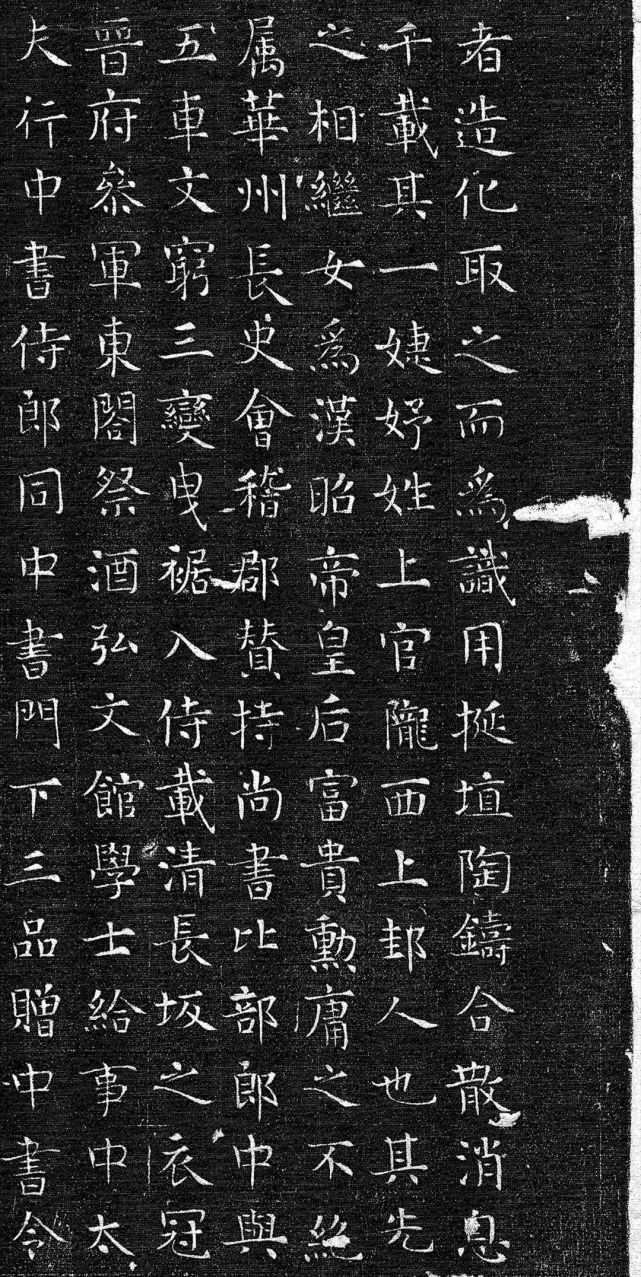 者造化取之而爲識用挻埴陶鑄合散消息
千載其一婕妤姓上官隴西上邽人也其先
之相繼女爲漢昭帝皇后富貴勳庸之不絶
属華州長史會稽郡賛持尚書比部郎中與
五車文窮三變曳裾入侍載清長坂之衣冠
晉府叅軍東閣祭酒弘文館學士給事中太
夫行中書侍郎同中書門下三品贈中書令